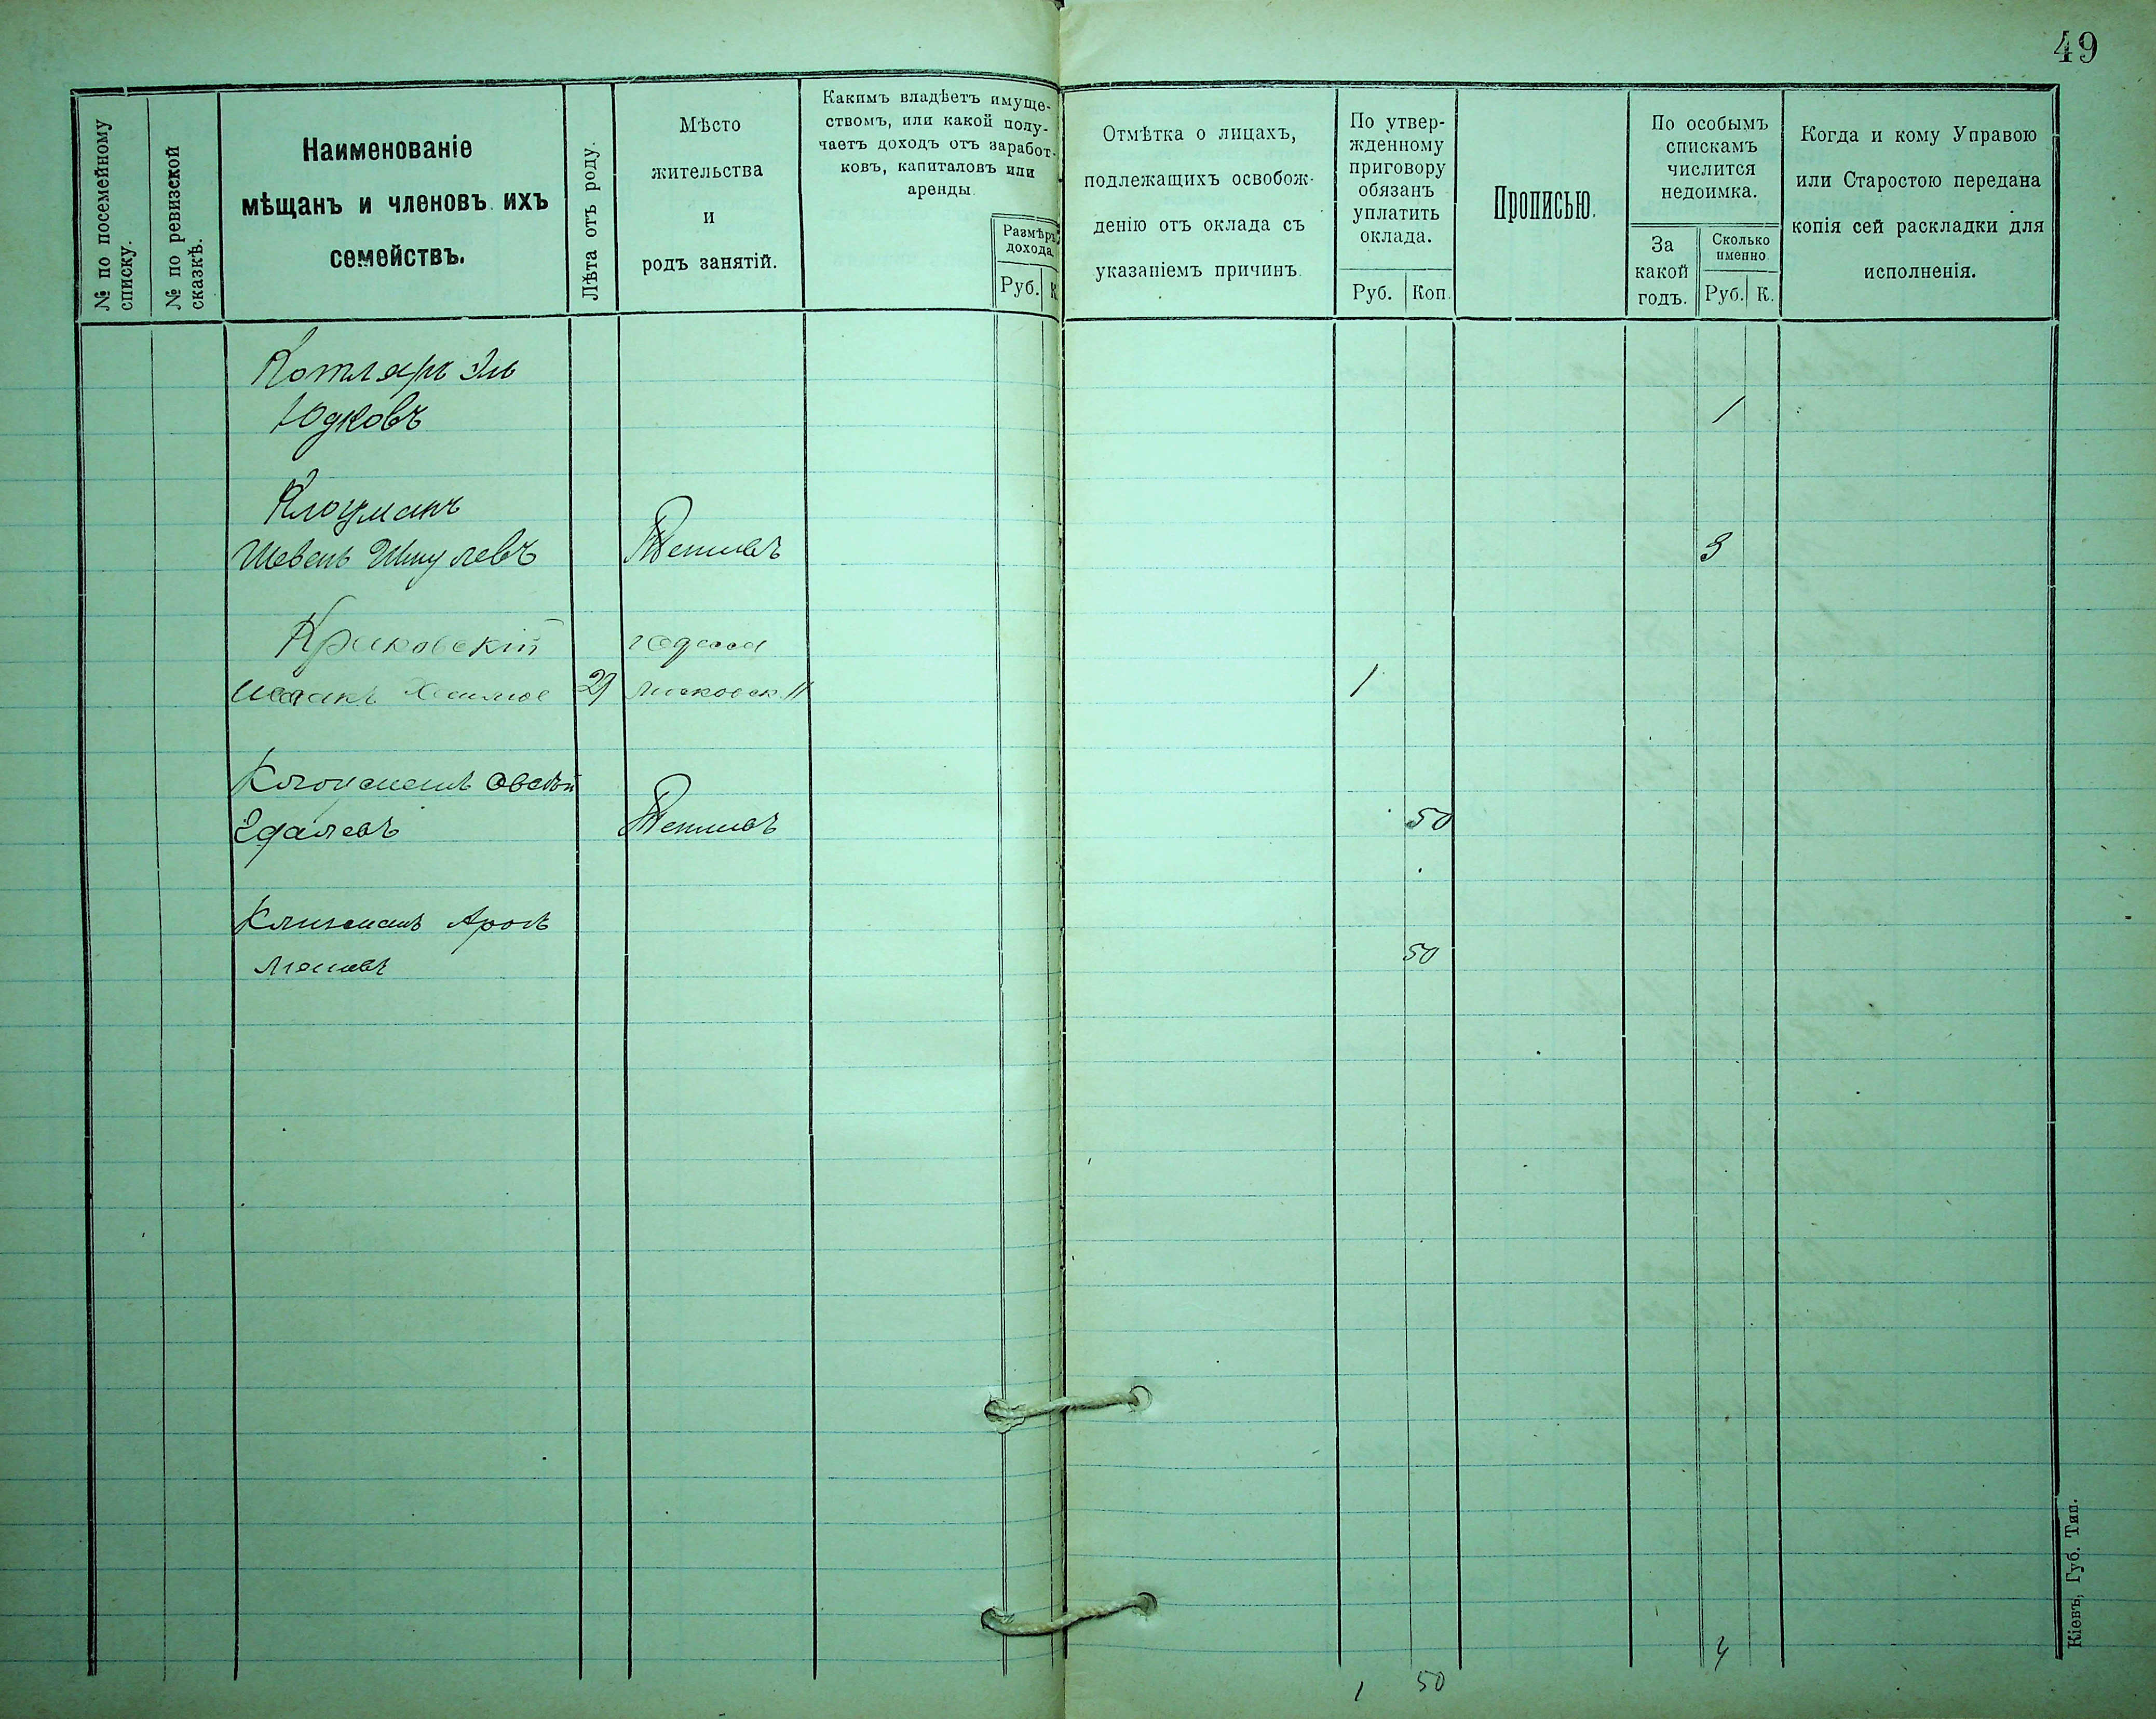 49
№ по посемейному
списку.
№ по ревизской
сказкѣ.
Наименованіе
мѣщанъ и членовъ ихъ
семействъ.
Лѣта отъ роду.
Мѣсто
жительства
и
родъ занятій.
Какимъ владѣетъ имуще-
ствомъ, или какой полу-
чаетъ доходъ отъ заработ-
ковъ, капиталовъ или
аренды.
Размѣръ
дохода.
Руб. К
Отмѣтка о лицахъ,
подлежащихъ освобож-
денію отъ оклада съ
указаніемъ причинъ.
По утвер-
жденному
приговору
обязанъ
уплатить
оклада.
Руб. Коп.
Прописью.
По особымъ
спискамъ
числится
недоимка.
За
какой
годъ.
Сколько
именно
Руб. К.
Когда и кому Управою
или Старостою передана
копія сей раскладки для
исполненія.
Котляръ Эль
Юдковъ 1
Клоцманъ
Шевель Шмулевъ Тетіевъ 3
Краковскій г Одесса
Исаакъ Хаимов 29 Московск. 11 1
Клоцманъ Овсѣй
Эдалевъ Тетіевъ 50
Клигманъ Аронъ
50
1 50 4
Кіевъ, Губ. Тип.